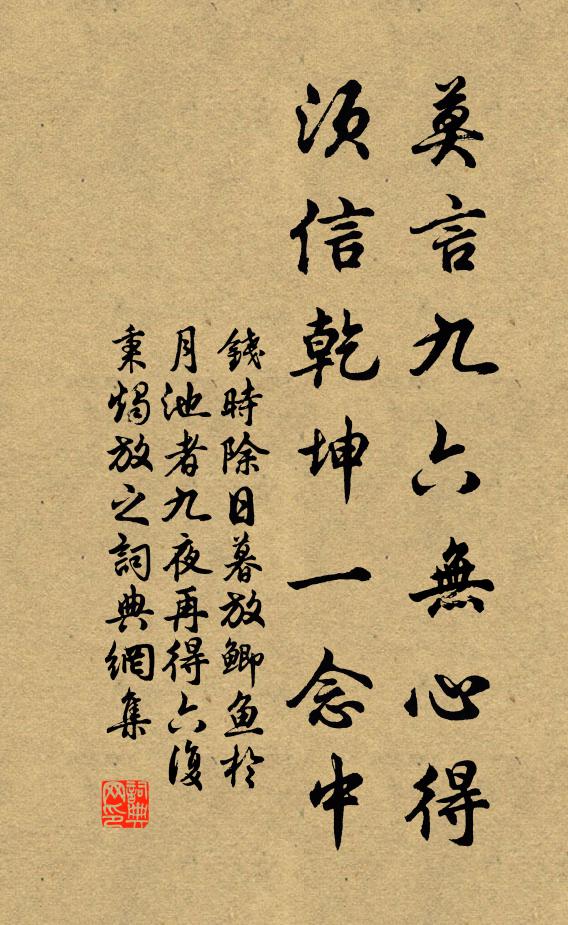 莫言九六無心得
須信乾坤一念中
錢時除日暮放鯽魚於
月池者九夜再得六復
秉燭放之詞典網集
詞典网印